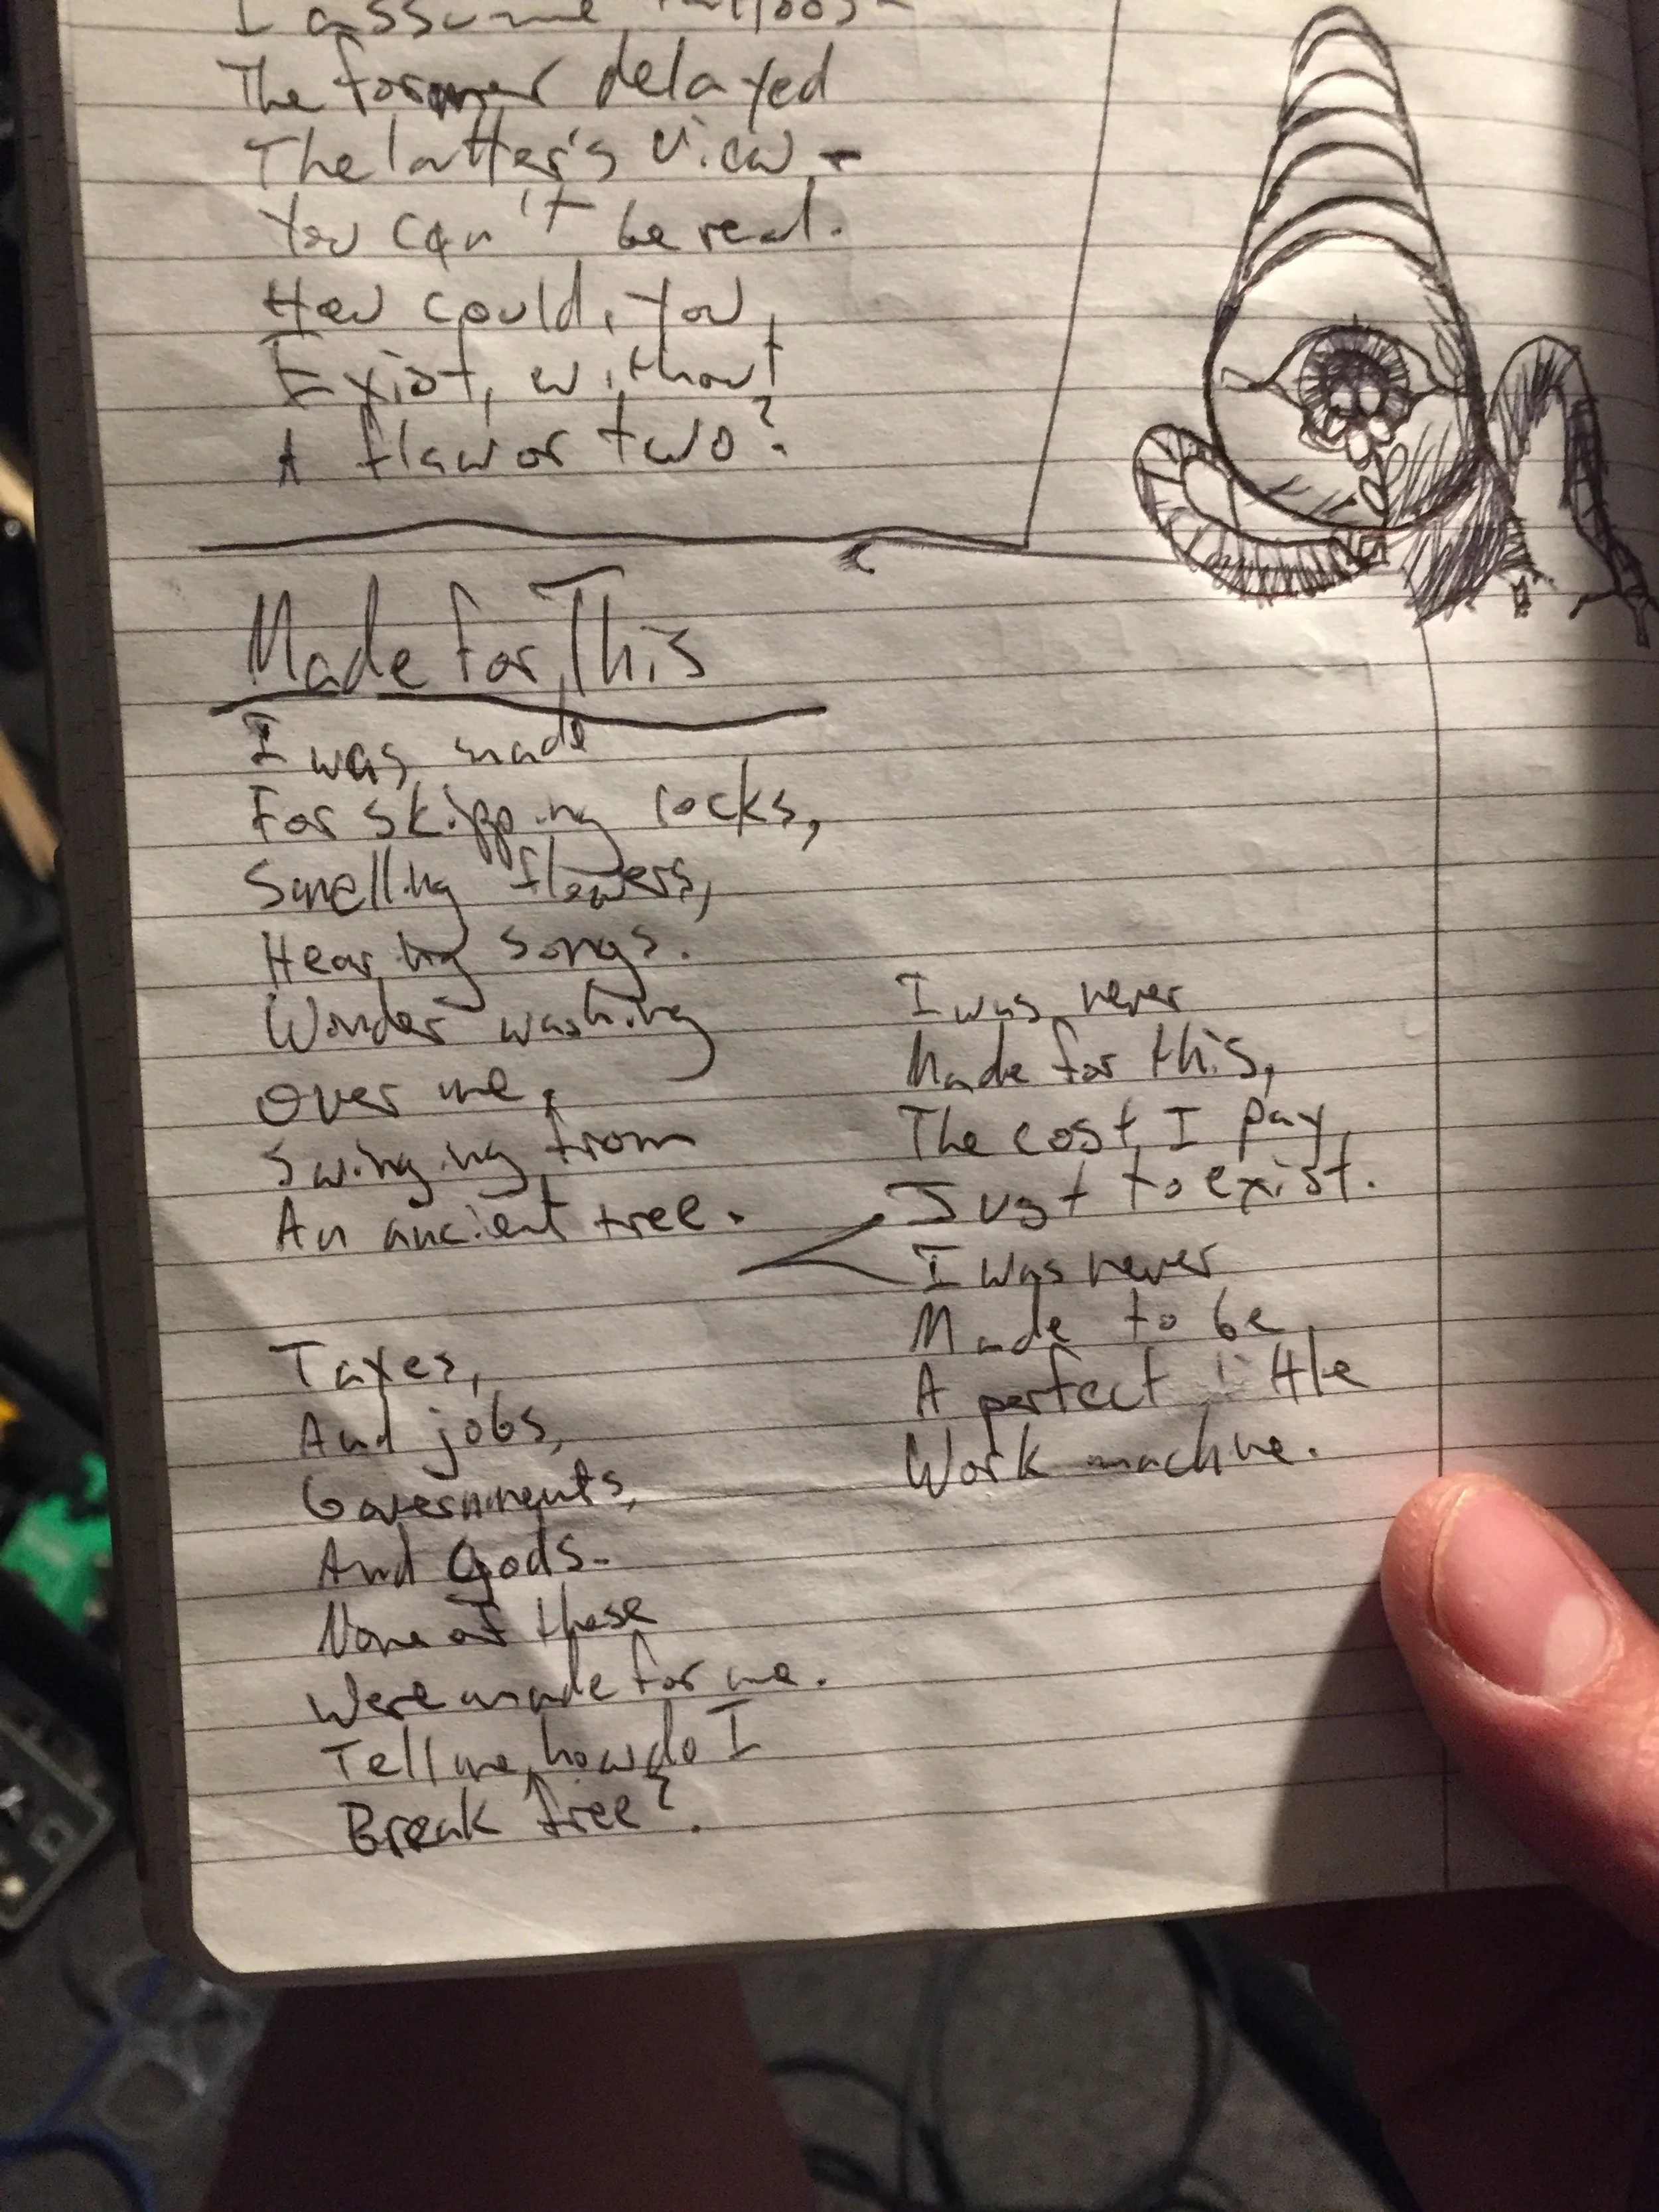 I assume
The former delayed
The latter's view -
You can't be real.
How could, you,
Exist, without
A flaw or two?
Made for This
I was made
For skipping rocks,
Smelling flowers,
Hearing songs.
Wonder washing
Over me,
Swinging from
An ancient tree.
I was never
Made for this,
The cost I pay,
Just to exist.
I was never
Made to be
A perfect little
Work machine.
Taxes,
And jobs,
Governments,
And Gods-
None of these
Were made for me.
Tell me, how do I
Break free?